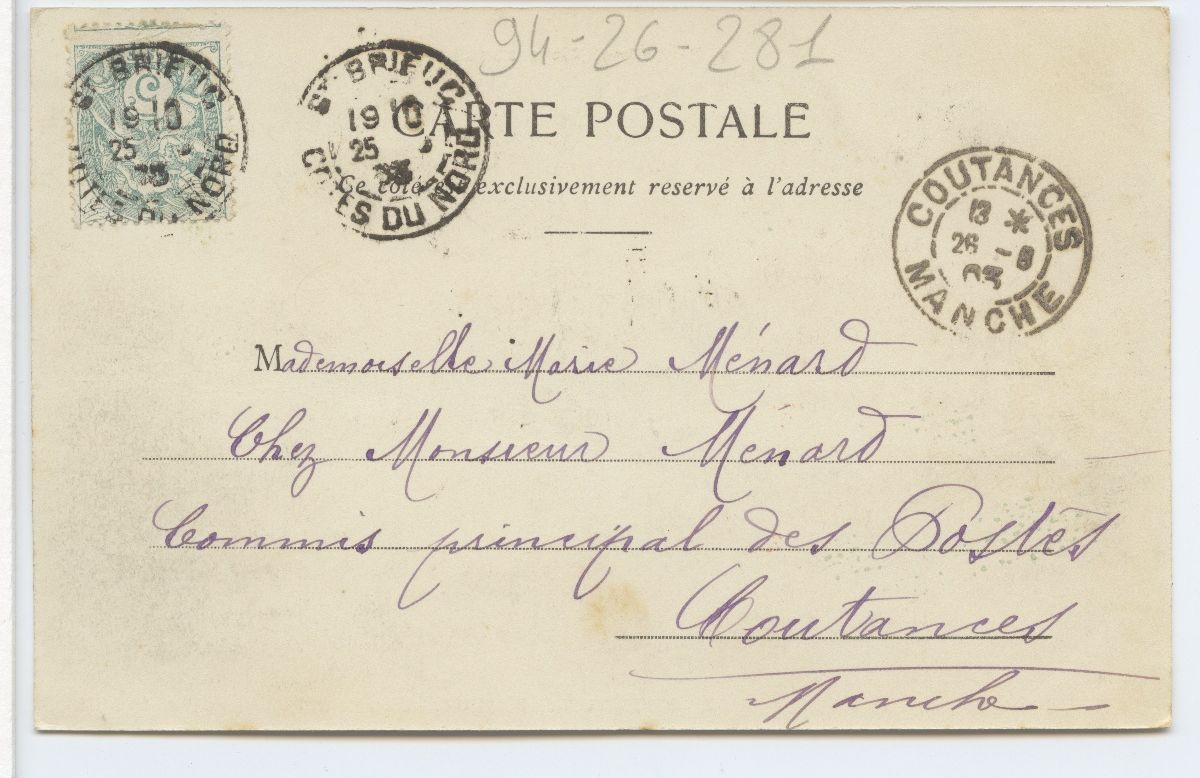 94-26-281
5
ST BRIEUC
19 10
25
COTES DU NORD
ST BRIEUC
19 10
25
COTES DU NORD
CARTE POSTALE
Ce côté est exclusivement reservé à l'adresse
COUTANCES
13 *
26 -8
03
MANCHE
Mademoiselle Marie Ménard
Chez Monsieur Ménard
Commis principal des Postes
Coutances
Manche